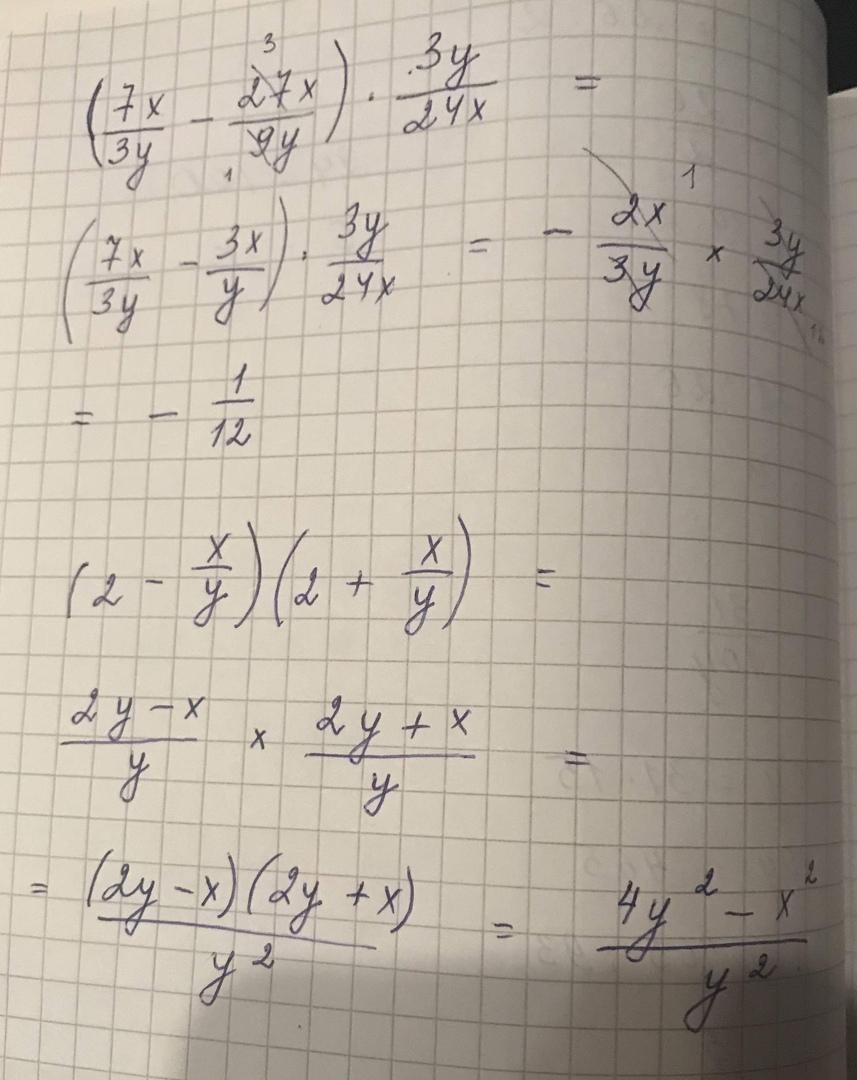 3
(7x/3y - 27x/9y) · 3y/24x =
1
(7x/3y - 3x/y) · 3y/24x = - 2x/3y × 3y/24x
1
12
= - 1/12
(2 - x/y)(2 + x/y) =
2y - x/y × 2y + x/y =
= (2y - x)(2y + x)/y² = 4y² - x²/y²